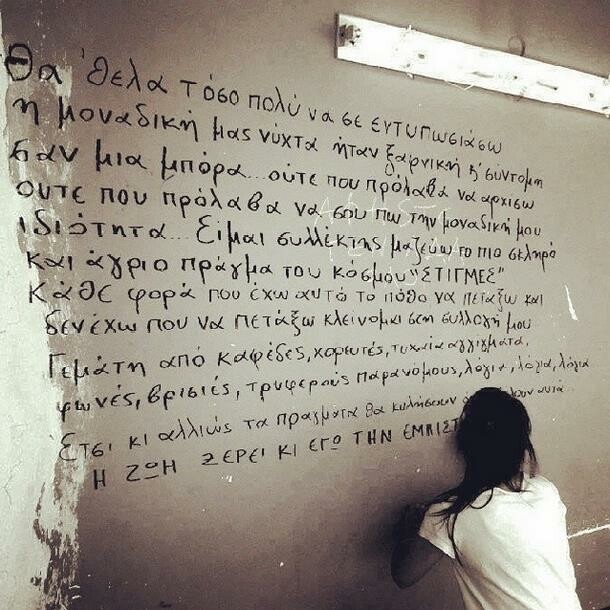 Θα 'θελα τόσο πολύ να σε εντυπωσιάσω
η μοναδική μας νύχτα ήταν ξαφνική κ' σύντομη
σαν μια μπόρα... ούτε που πρόλαβα να αρχίσω
ούτε που πρόλαβα να σου πω την μοναδική μου
ιδιότητα... Είμαι συλλέκτης μαζεύω το πιο σκληρό
και άγριο πράγμα του κόσμου "ΣΤΙΓΜΕΣ"
Κάθε φορά που έχω αυτό το πόθο να πετάξω και
δεν έχω που να πετάξω κλείνομαι στη συλλογή μου
Γεμάτη από καφέδες, χορευτές, τυχαία αγγίγματα,
φωνές, βρισιές, τρυφερούς παρανόμους, λόγια, λόγια, λόγια
Έτσι κι αλλιώς τα πράγματα θα κυλήσουν αυτά
Η ΖΩΗ ΞΕΡΕΙ ΚΙ ΕΓΩ ΤΗΝ